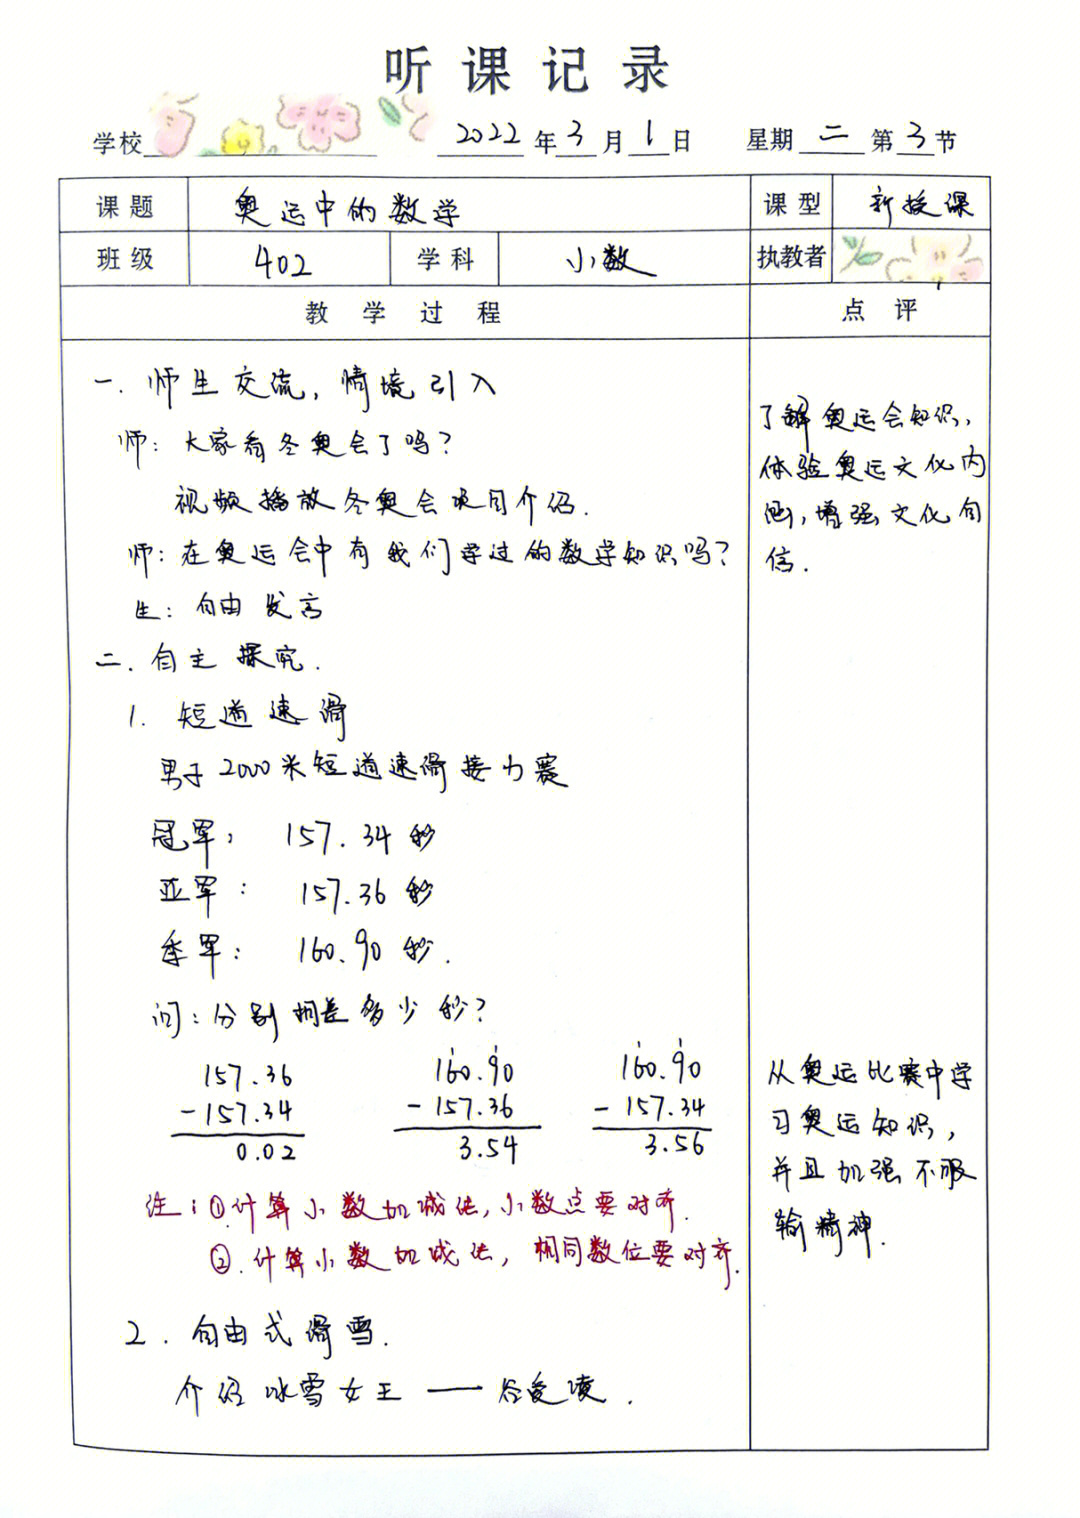 听课记录
学校 2022年3月1日 星期二 第3节
课题 奥运中的数学 课型 新授课
班级 402 学科 小数 执教者
教学过程 点评
一.师生交流,情境引入
师:大家看冬奥会了吗?
视频播放冬奥会项目介绍.
师:在奥运会中有我们学过的数学知识吗?
生:自由发言
二.自主探究.
1.短道速滑
男子2000米短道速滑接力赛
冠军: 157.34秒
亚军: 157.36秒
季军: 160.90秒.
问:分别相差多少秒?
157.36 160.90 160.90
-157.34 -157.36 -157.34
0.02 3.54 3.56
注:①.计算小数加减法,小数点要对齐.
②.计算小数加减法,相同数位要对齐.
2.自由式滑雪.
介绍冰雪女王——谷爱凌.
了解奥运会知识,
体验奥运文化内
涵,增强文化自
信.
从奥运比赛中学
习奥运知识,
并且加强不服
输精神.